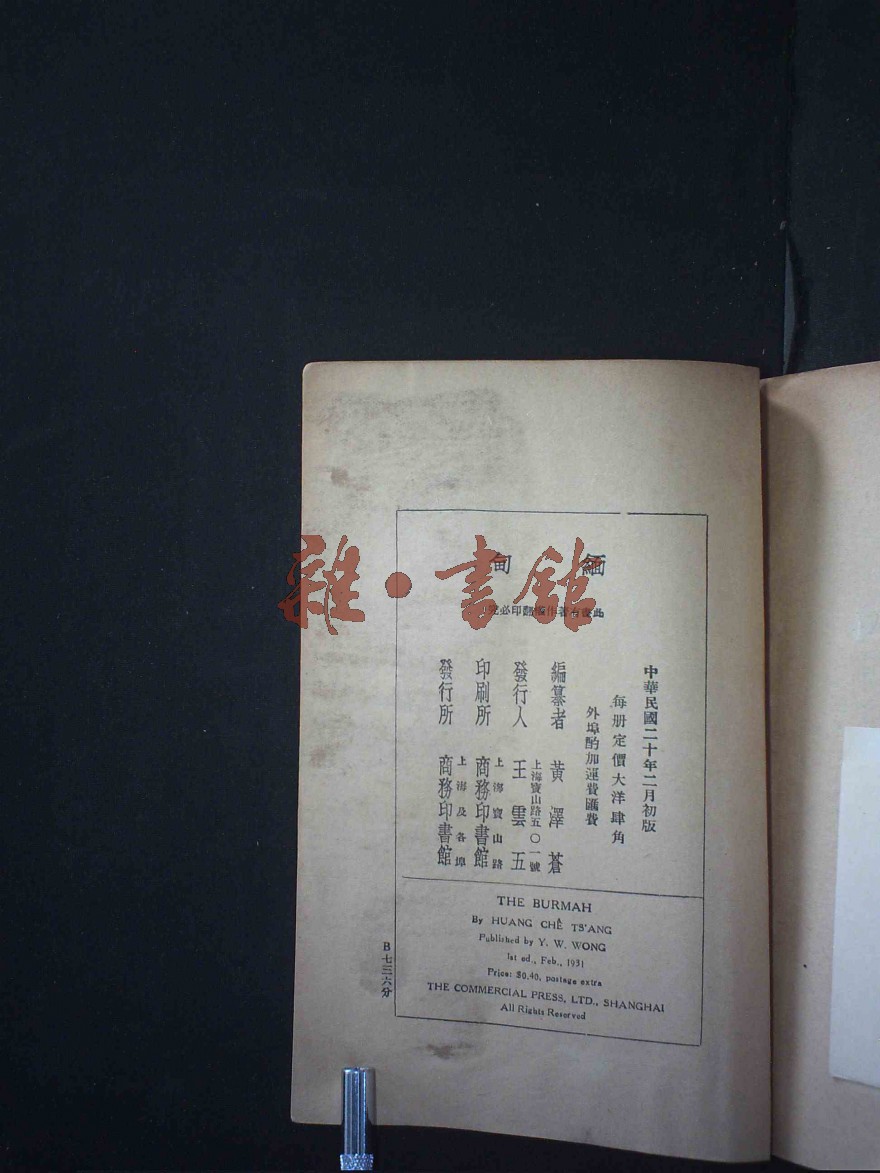 緬甸
此書有著作權翻印必究
中華民國二十年二月初版
每册定價大洋肆角
外埠酌加運費匯費
編纂者 黃澤蒼
上海寶山路五〇一號
發行人 王雲五
上海寶山路
印刷所 商務印書館
上海及各埠
發行所 商務印書館
THE BURMAH
By HUANG CHÊ TS'ANG
Published by Y. W. WONG
1st ed., Feb., 1931
Price: $0.40, postage extra
THE COMMERCIAL PRESS, LTD., SHANGHAI
All Rights Reserved
B
分
雜·書館